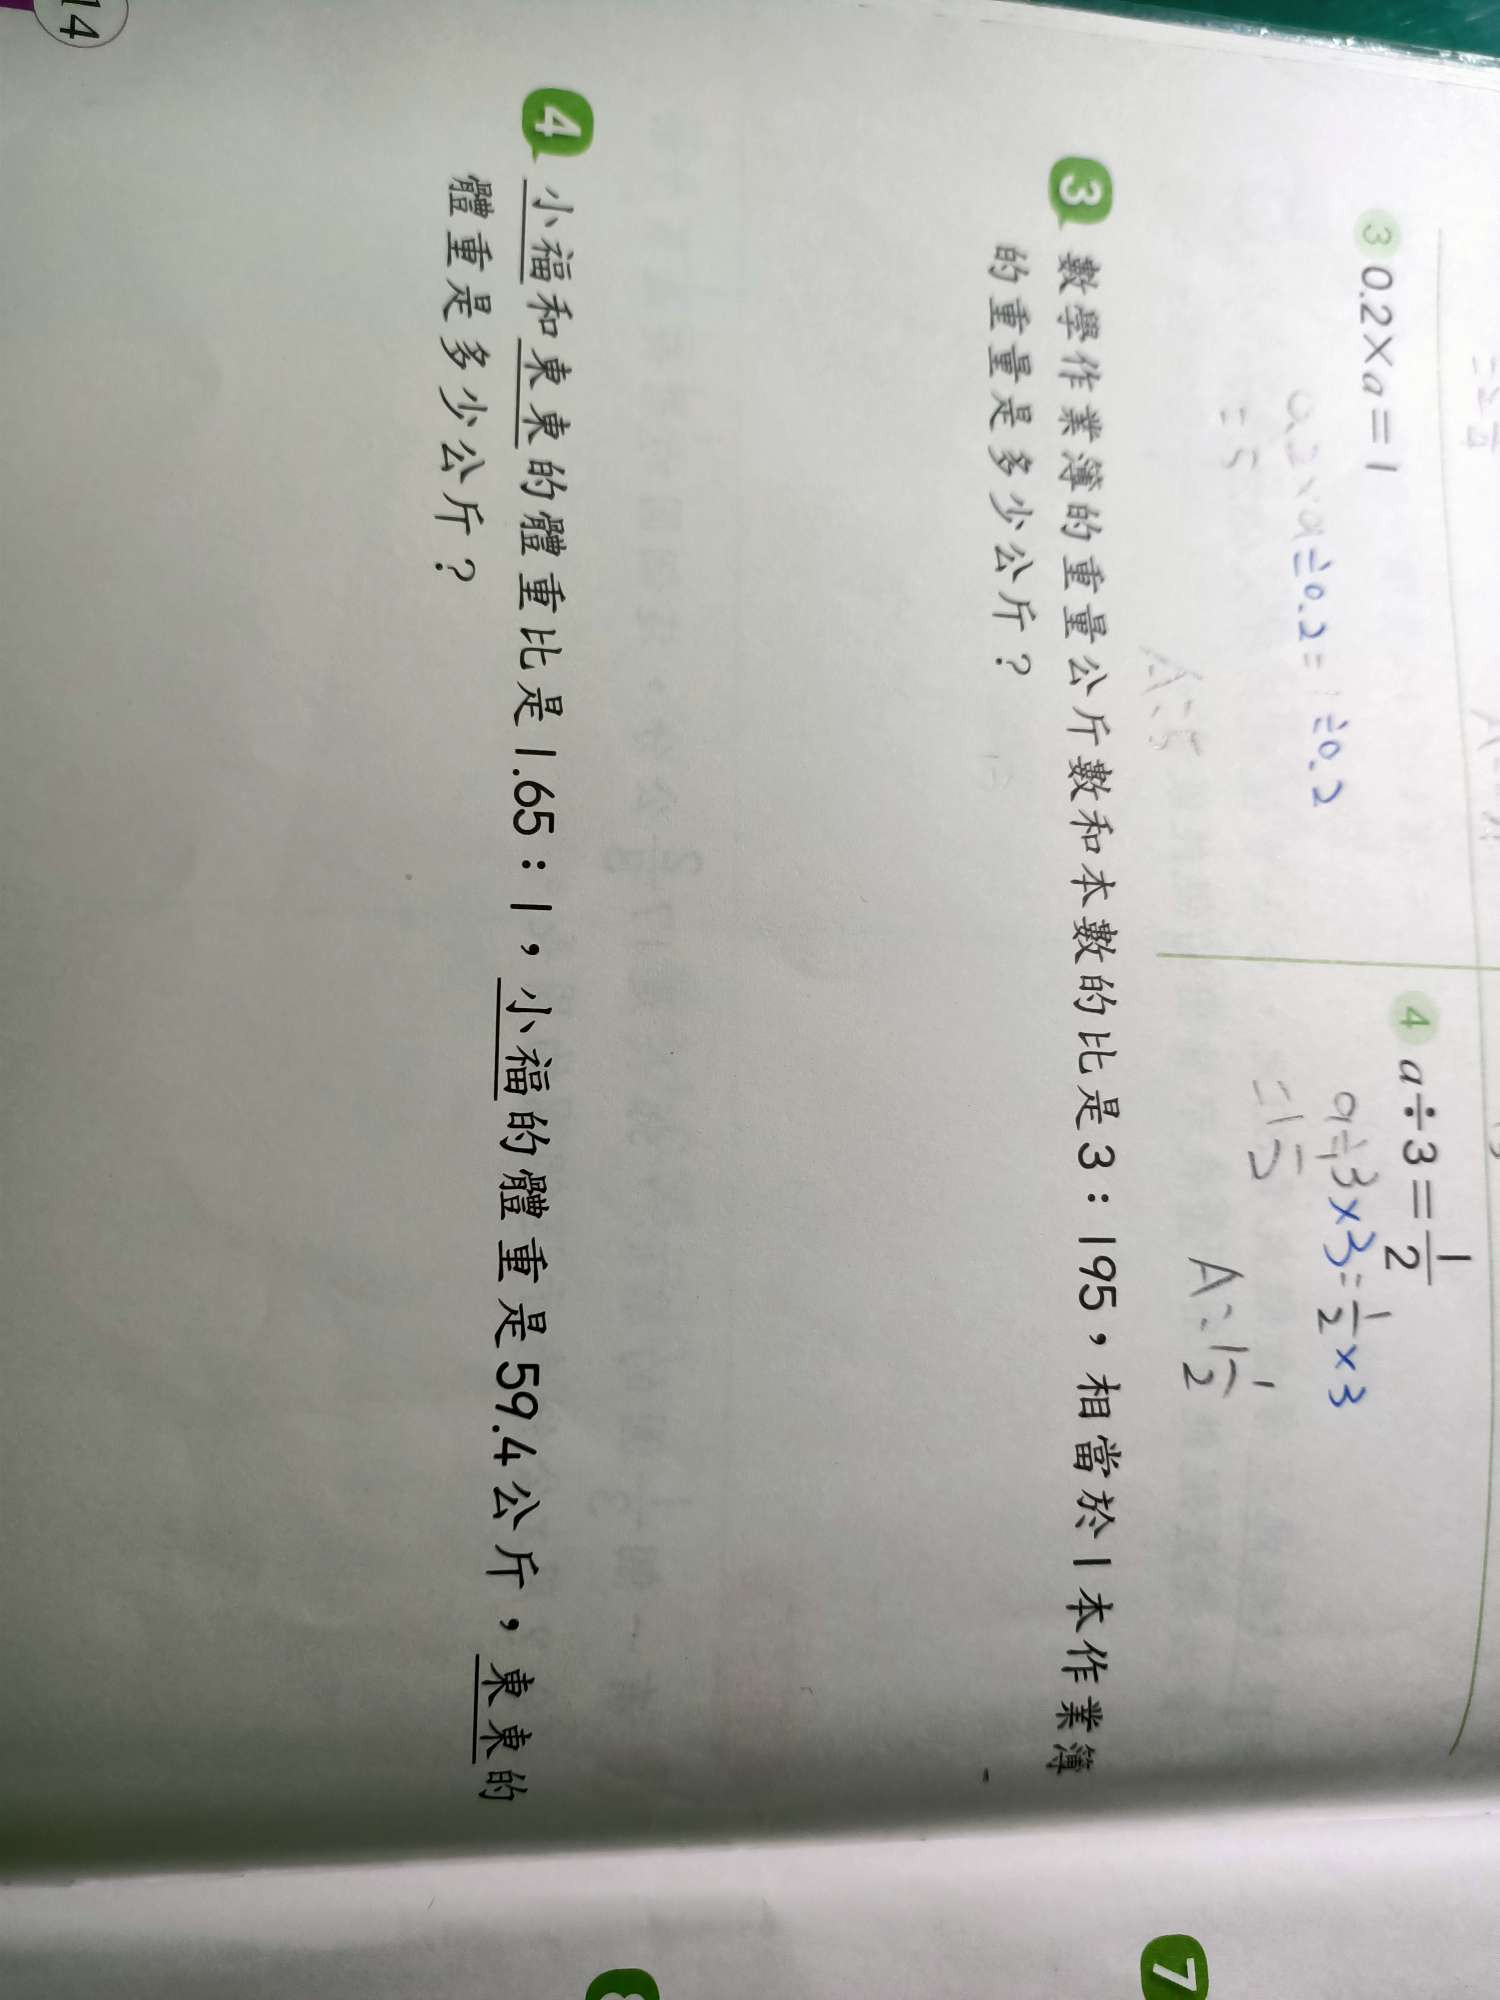 ③ 0.2×a=1
0.2×a÷0.2=1÷0.2
=5
A:5
④ a÷3=1/2
a÷3×3=1/2×3
A:1 1/2
3 數學作業簿的重量公斤數和本數的比是3:195,相當於1本作業簿
的重量是多少公斤?
4 小福和東東的體重比是1.65:1,小福的體重是59.4公斤,東東的
體重是多少公斤?
14
7
8